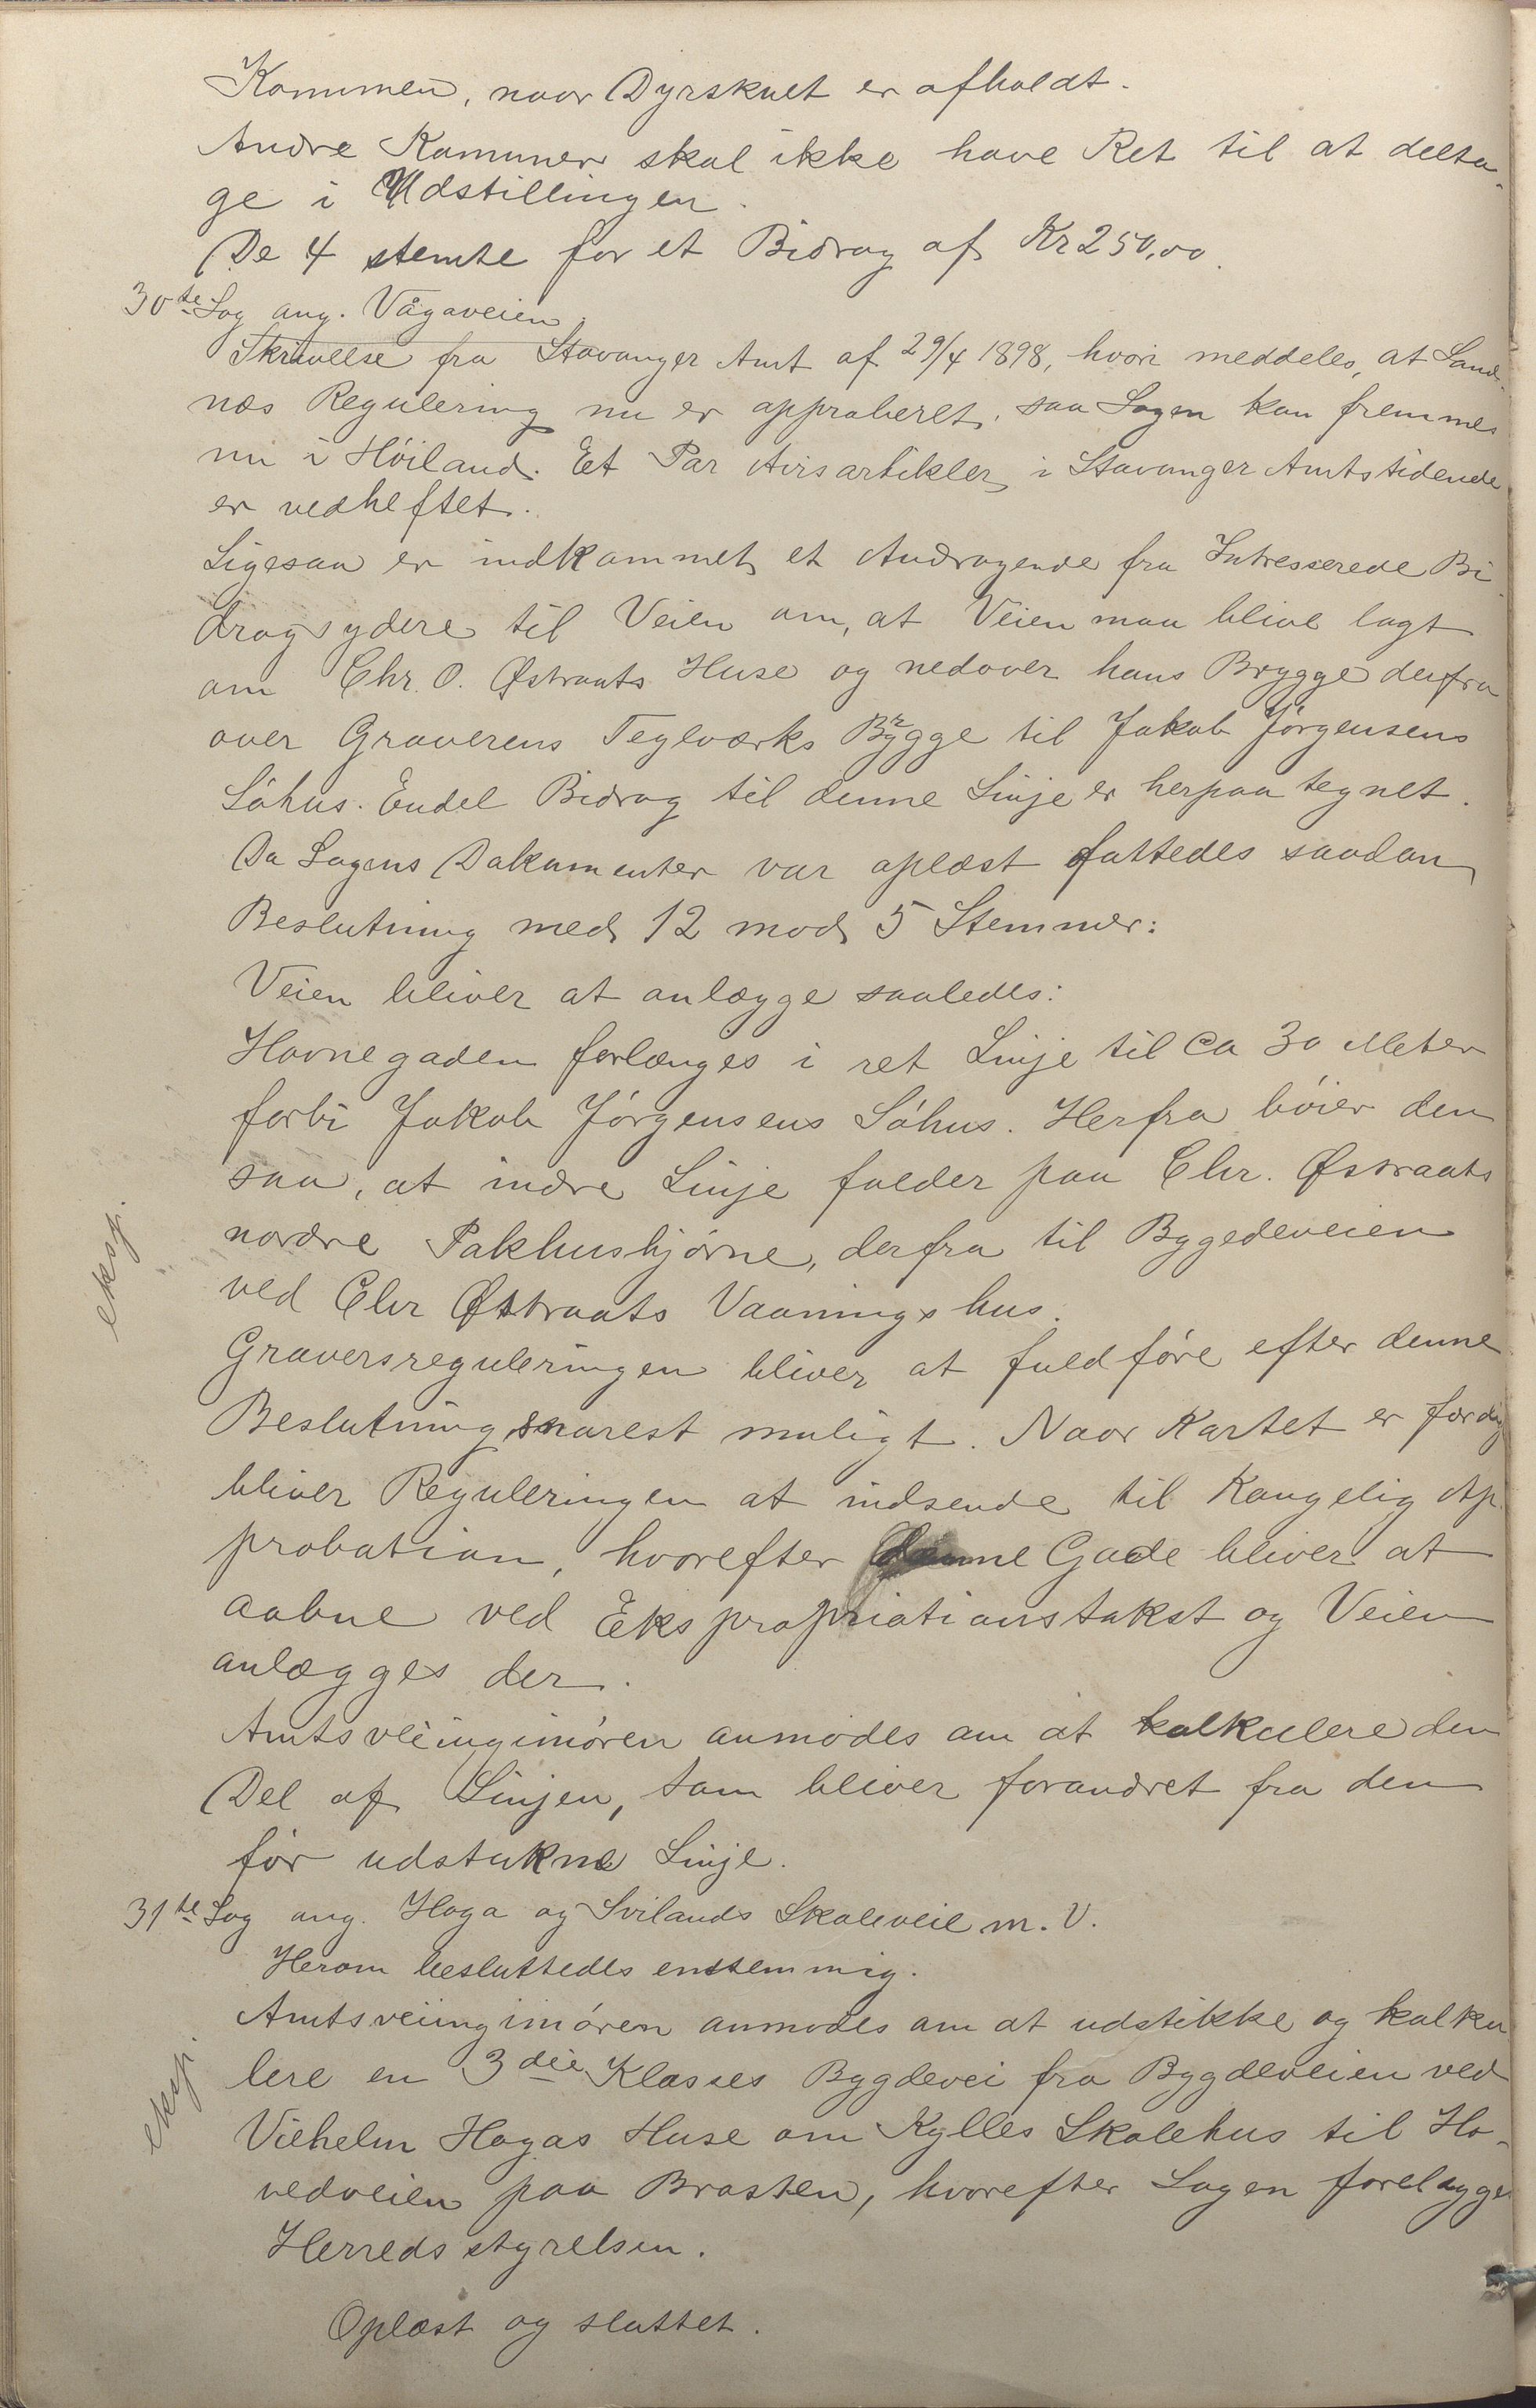 Kommen, naar Dyrskuet er afholdt.
Andre Kommuner skal ikke have Ret til at delta-
ge i Udstillingen.
De 4 stemte for et Bidrag af Kr 250,00.
30te Sag ang. Vågaveien.
Skrivelse fra Stavanger Amt af 29/4 1898, hvori meddeles, at Sand-
næs Regulering nu er approberet, saa Sagen kan fremmes
nu i Höiland. Et Par Avisartikler i Stavanger Amtstidende
er vedheftet.
Ligesaa er indkommet et Andragende fra Intresserede Bi-
dragsydere til Veien om, at Veien maa blive lagt
om Chr. O. Østraats Huse og nedover hans Brygge derfra
over Graverens Teglværks Brygge til Jakob Jörgensens
Söhus. Endel Bidrag til denne Linje er herpaa tegnet.
Da Sagens Dokumenter var oplæst fattedes saadan
Beslutning med 12 mod 5 Stemmer:
Veien bliver at anlægge saaledes:
Havnegaden forlænges i ret Linje til ca 30 Meter
forbi Jakob Jörgensens Söhus. Herfra böier den
saa, at indre Linje falder paa Chr. Østraats
nordre Pakhushjörne, derfra til Bygedeveien
ved Chr Østraats Vaaningshus.
Graversreguleringen bliver at fuldföre efter denne
Beslutning snarest muligt. Naar Kartet er færdig
bliver Reguleringen at indsende til Kongelig Ap-
probation, hvorefter denne Gade bliver at
aabne ved Ekspropriationstakst og Veien
anlægges der.
eksp.
Amtsveiinginiören anmodes om at kalkulere den
Del af Linjen, som bliver forandret fra den
för udstukne Linje.
31te Sag ang. Hoga og Svilands Skoleveie m. V.
Herom besluttedes enstemmig.
Amtsveiinginiören anmodes om at udstikke og kalku
lere en 3die Klasses Bygdevei fra Bygdeveien ved
Vilhelm Hogas Huse om Kylles Skolehus til Ho-
vedveien paa Brasten, hvorefter Sagen forelægges
Herredsstyrelsen.
eksp.
Oplæst og sluttet.